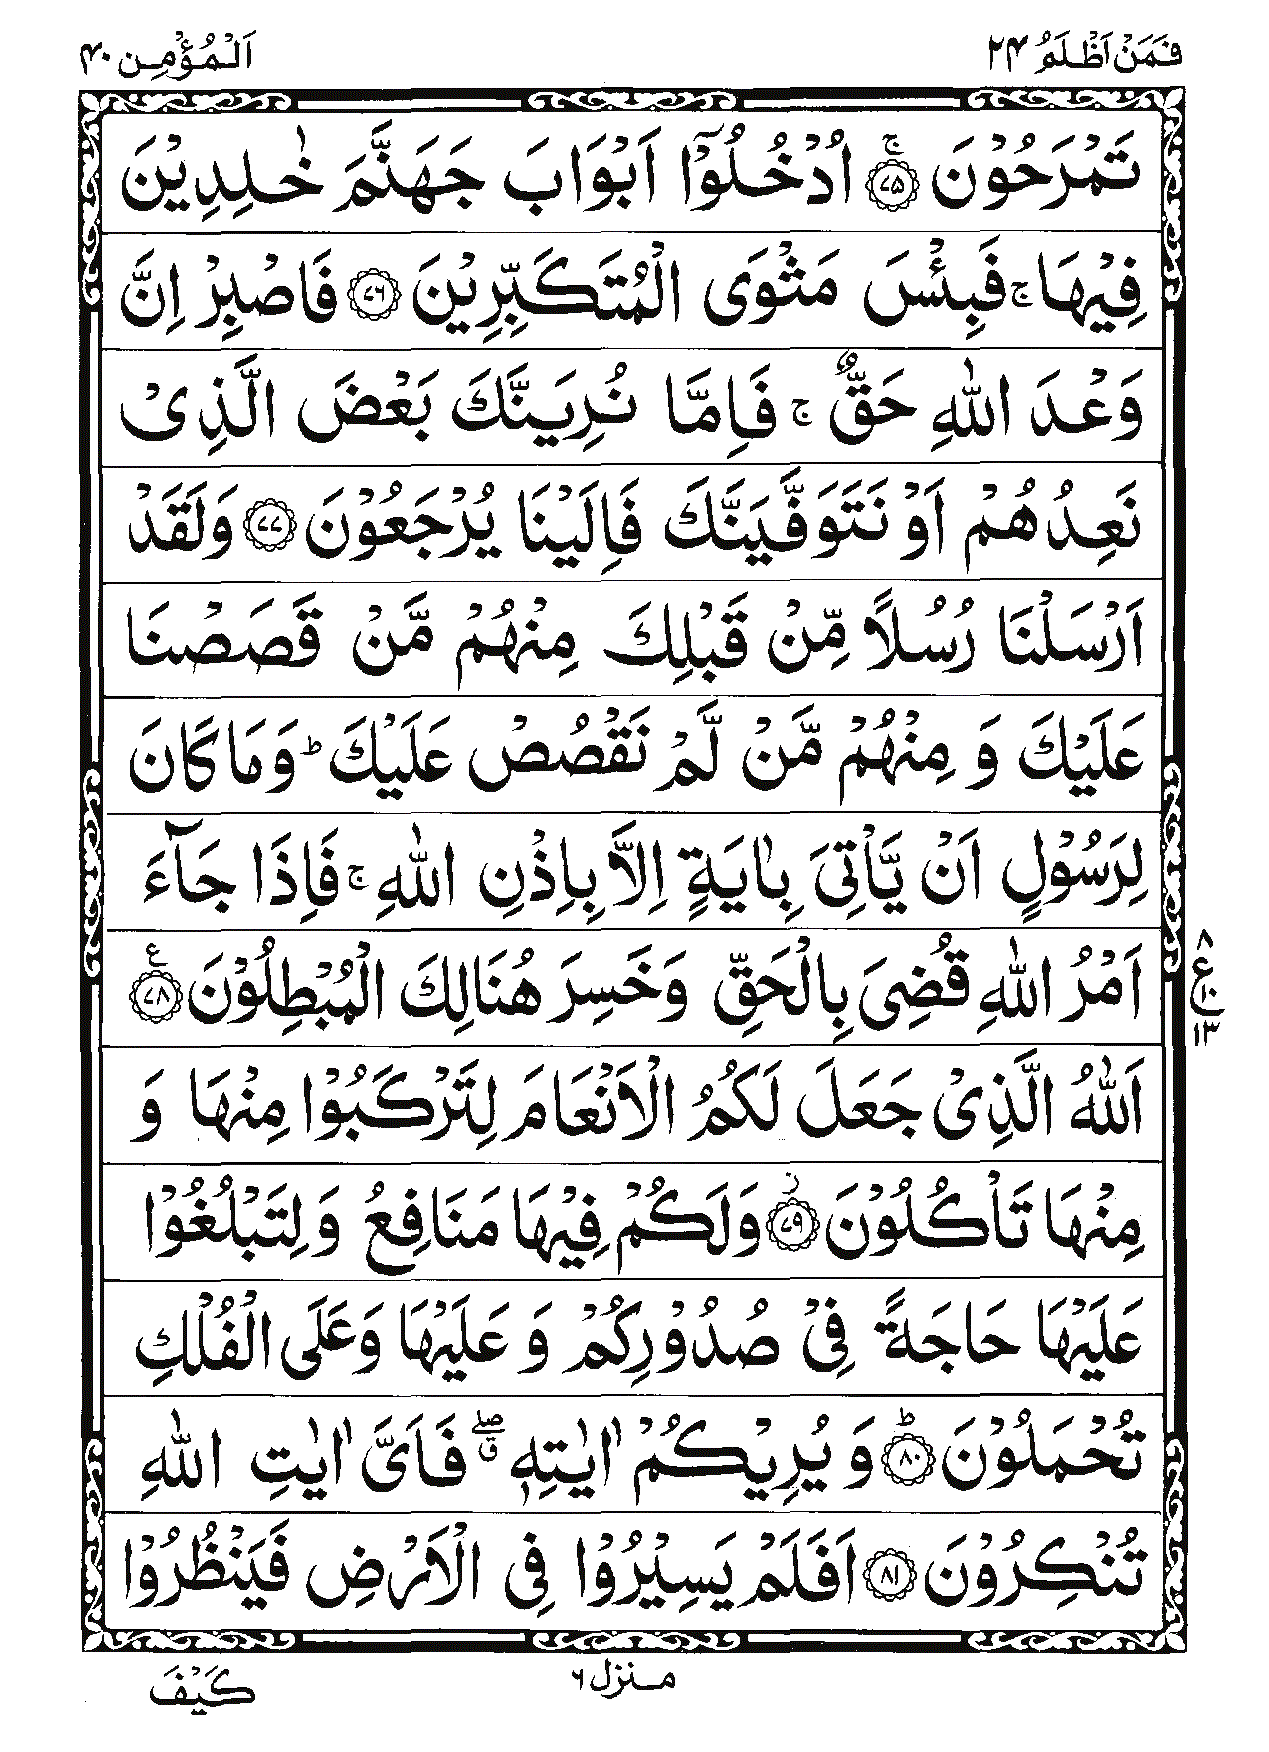 فَمَنْ اَظْلَمُ ۲۴ اَلْمُؤْمِن ۴۰
تَمْرَحُوْنَ ۚ﴿۷۵﴾ اُدْخُلُوْۤا اَبْوَابَ جَهَنَّمَ خٰلِدِيْنَ
فِيْهَا ۚ فَبِئْسَ مَثْوَى الْمُتَكَبِّرِيْنَ ﴿۷۶﴾ فَاصْبِرْ اِنَّ
وَعْدَ اللّٰهِ حَقٌّ ۚ فَاِمَّا نُرِيَنَّكَ بَعْضَ الَّذِىْ
نَعِدُهُمْ اَوْ نَتَوَفَّيَنَّكَ فَاِلَيْنَا يُرْجَعُوْنَ ﴿۷۷﴾ وَلَقَدْ
اَرْسَلْنَا رُسُلًا مِّنْ قَبْلِكَ مِنْهُمْ مَّنْ قَصَصْنَا
عَلَيْكَ وَ مِنْهُمْ مَّنْ لَّمْ نَقْصُصْ عَلَيْكَ ؕ وَمَا كَانَ
لِرَسُوْلٍ اَنْ يَّاْتِىَ بِاٰيَةٍ اِلَّا بِاِذْنِ اللّٰهِ ۚ فَاِذَا جَآءَ
اَمْرُ اللّٰهِ قُضِىَ بِالْحَقِّ وَخَسِرَ هُنَالِكَ الْمُبْطِلُوْنَ ﴿۷۸﴾ ع
۸ ع ۱۰ ۱۳
اَللّٰهُ الَّذِىْ جَعَلَ لَكُمُ الْاَنْعَامَ لِتَرْكَبُوْا مِنْهَا وَ
مِنْهَا تَاْكُلُوْنَ ز﴿۷۹﴾ وَلَكُمْ فِيْهَا مَنَافِعُ وَلِتَبْلُغُوْا
عَلَيْهَا حَاجَةً فِىْ صُدُوْرِكُمْ وَ عَلَيْهَا وَعَلَى الْفُلْكِ
تُحْمَلُوْنَ ؕ﴿۸۰﴾ وَ يُرِيْكُمْ اٰيٰتِهٖ ۖق فَاَىَّ اٰيٰتِ اللّٰهِ
تُنْكِرُوْنَ ﴿۸۱﴾ اَفَلَمْ يَسِيْرُوْا فِى الْاَرْضِ فَيَنْظُرُوْا
منزل ۶
كَيْفَ